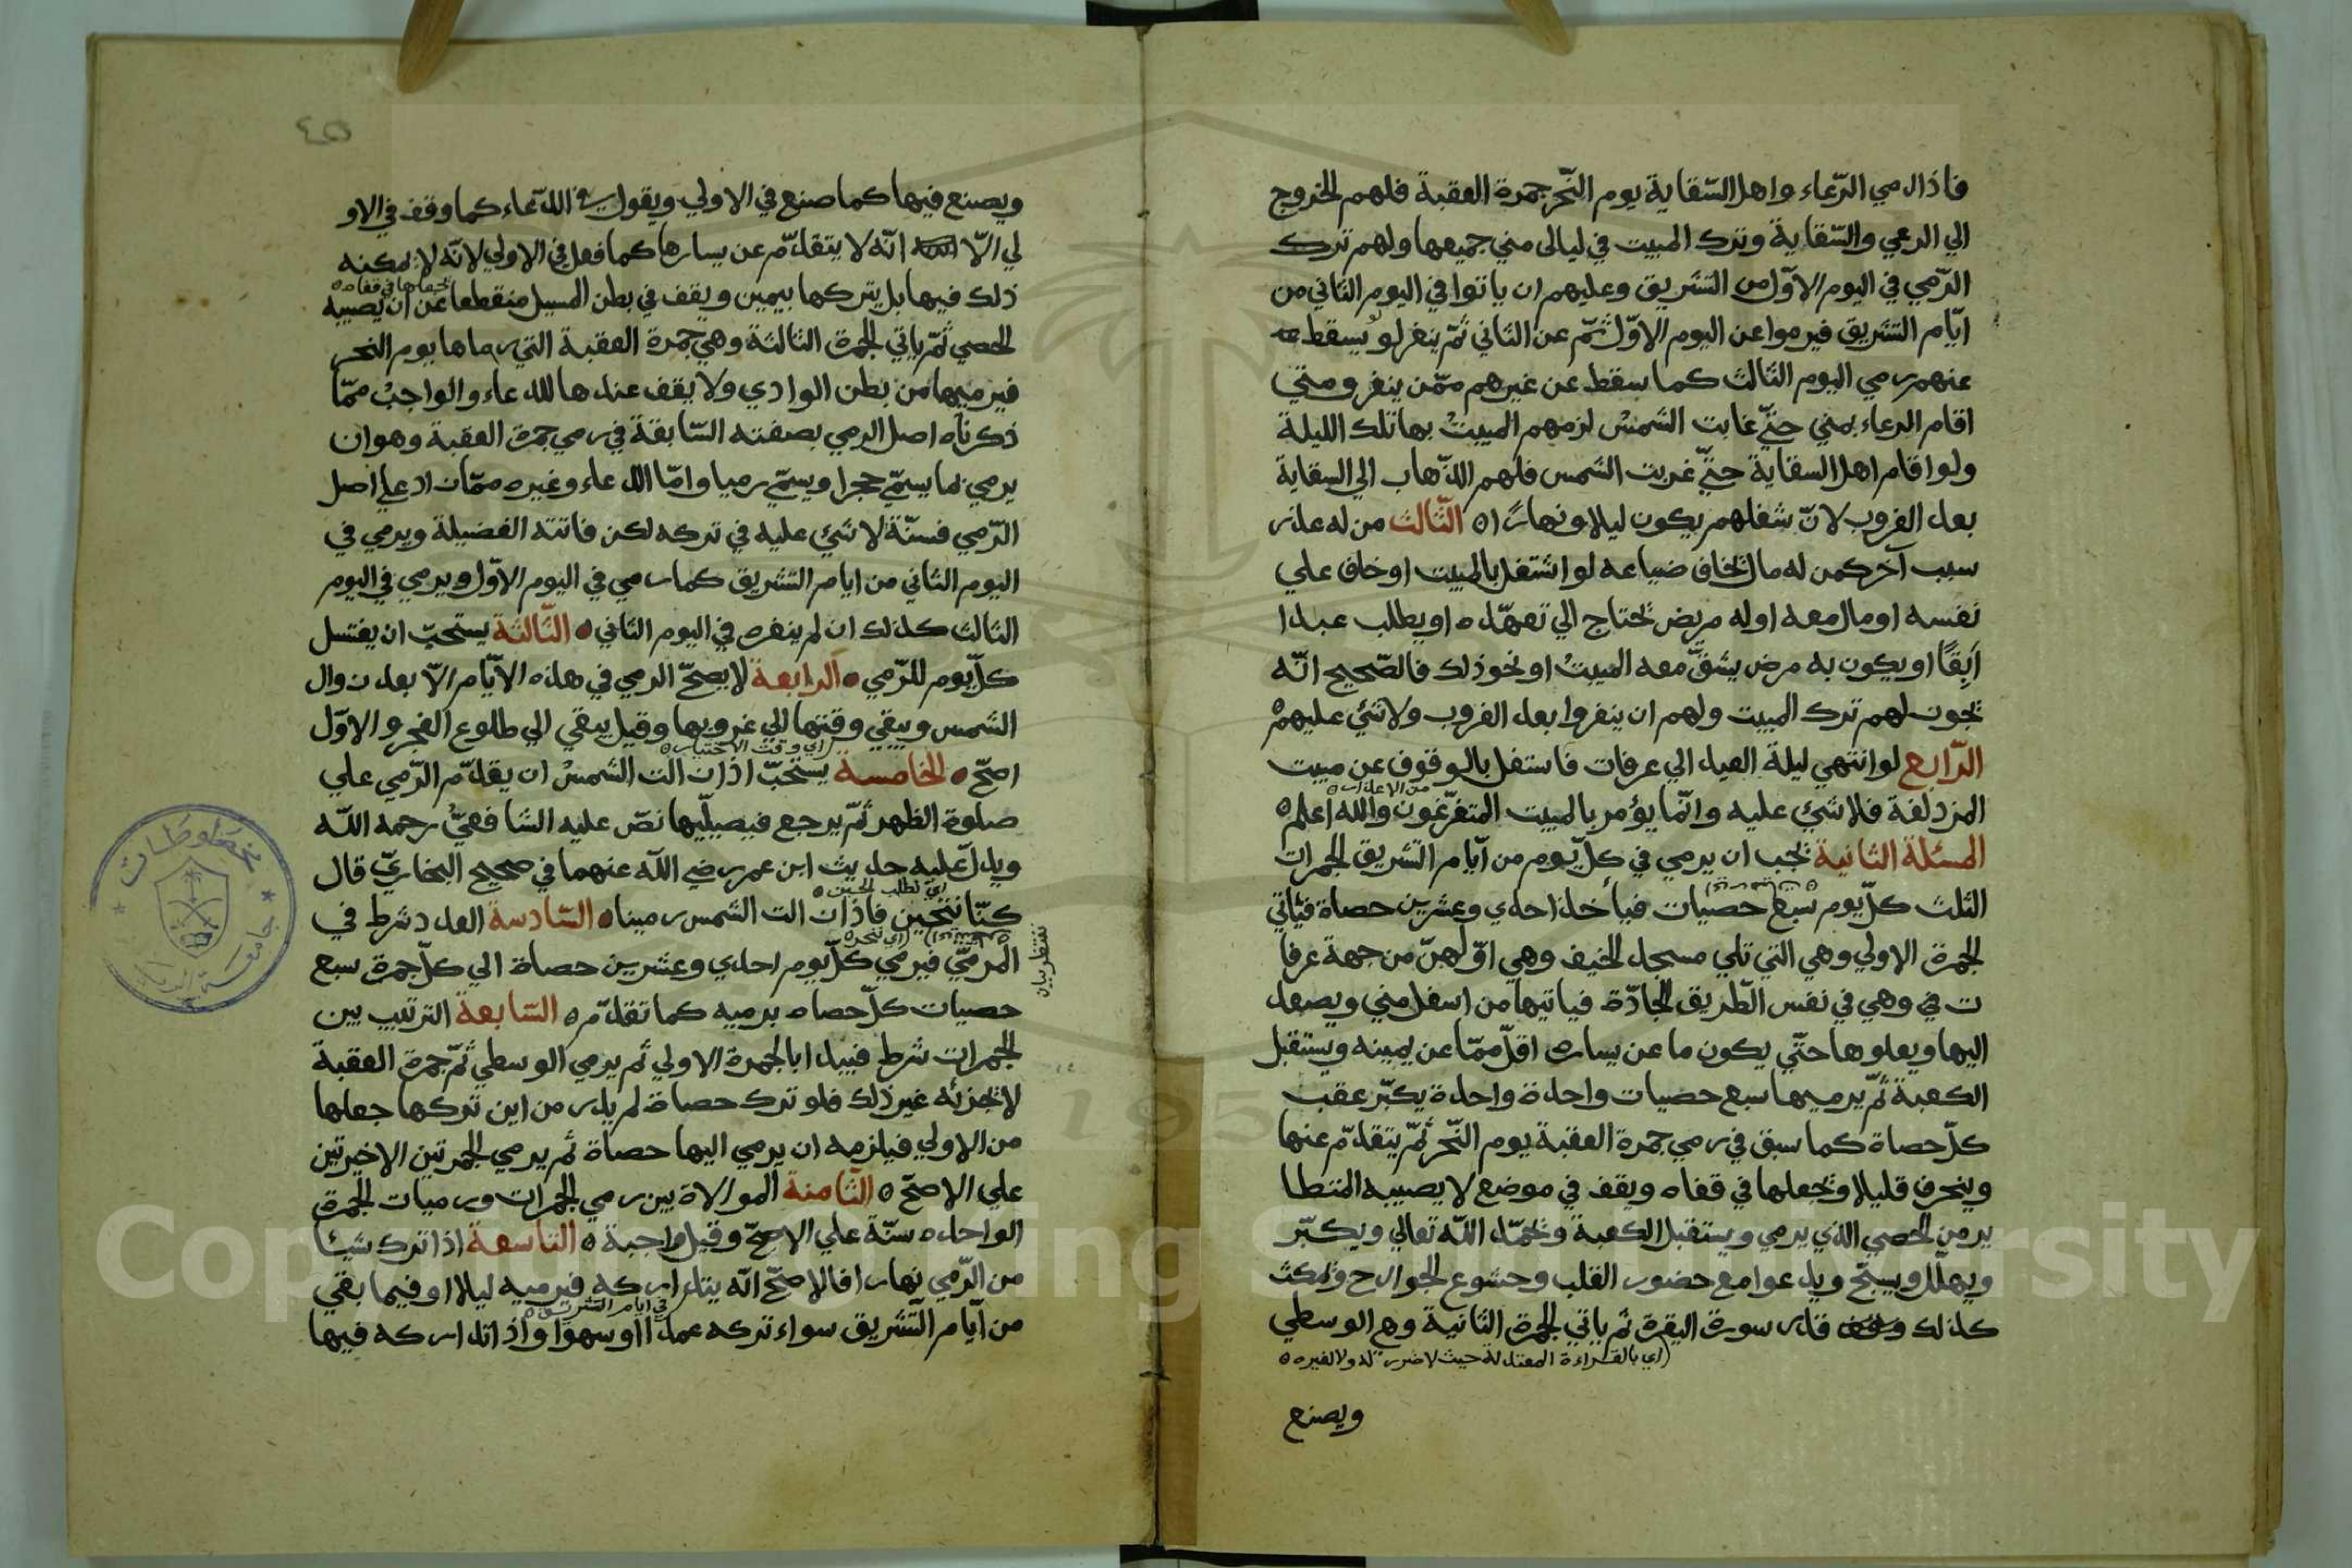 فاذا رمي الرّعاء واهل السّقاية يوم النّحر جمرة العقبة فلهم الخروج
الي الرعي والسّقاية وترك المبيت في ليالى مني جميعها ولهم ترك
الرّمي في اليوم الاوّل من التشريق وعليهم ان ياتوا في اليوم الثاني من
ايّام التشريق فيرموا عن اليوم الاوّل ثمّ عن الثاني ثمّ ينفرلو يسقط
عنهم رمي اليوم الثالث كما سقط عن غيرهم ممّن ينفر ومتي
اقام الرعاء بمني حتّي غابت الشمسُ لزمهم المبيتُ بها تلك الليلة
ولو اقام اهل السقاية حتّي غربت الشمس فلهم الذّهاب الي السقاية
بعد الغروب لانّ شغلهم يكون ليلا ونهارًا ه الثّالث من له عذر
سبب آخر كمن له مال يخاف ضياعه لو اشتغل بالمبيت او خاف علي
نفسه او مال معه او له مريض يحتاج الي تعهّده او يطلب عبدا
آبقًا او يكون به مرض يشقّ معه المبيتُ او نحو ذلك فالصّحيح انّه
يجوز لهم ترك المبيت ولهم ان ينفروا بعد الغروب ولا شئ عليهم ه
الرّابع لو انتهي ليلة العيد الي عرفات فاستغل بالوقوف عن مبيت
من الاعذار ه
المزدلفة فلا شئ عليه وانّما يؤمر بالمبيت المتفرّغون والله اعلم ه
المسئلة الثانية يجب ان يرمي في كلّ يوم من ايّام التّشريق الجمرات
الثلث كلّ يوم سبع حصيات فيأخذ احدي وعشرين حصاة فيأتي
الجمرة الاولي وهي التي تلي مسجد الخيف وهي اوّلهنّ من جهة عرفا
ت في وهي في نفس الطّريق الجادّة فياتيها من اسفل مني ويصعد
اليها ويعلوها حتّي يكون ما عن يساره اقلّ ممّا عن يمينه ويستقبل
الكعبة ثمّ يرميها سبع حصيات واحدة واحدة يكبّر عقب
كلّ حصاة كما سبق في رمي جمرة العقبة يوم النّحر ثمّ يتقدّم عنها
وينحرف قليلا ويجعلها في قفاه ويقف في موضع لا يصيبه المتطا
ير من الحصي الذي يرمي ويستقبل الكعبة ويحمّد اللّه تعالي ويكبّر
ويهلّل ويسبّح ويدعوا مع حضور القلب وخشوع الجوارح ويمكث
كذلك قدر سورة البقرة ثم ياتي الجمرة الثانية وهي الوسطي
(اي بالقراءة المعتدلة حيث لا ضرر له ولا لغيره ه
ويصنع
٤٥
ويصنع فيها كما صنع في الاولي ويقول الدّعاء كما وقف في الاو
لي الّا انّه لا يتقدّم عن يسارها كما فعل في الاولي لانّه لا يمكنه
يجعلها في قفاه ه
ذلك فيها بل يتركها بيمين ويقف في بطن المسيل منقطعا عن ان يصيبه
الحصي ثمّ ياتي الجمرة الثالثة وهي جمرة العقبة التي رماها يوم النحر
فيرميها من بطن الوادي ولا يقف عندها للدعاء والواجبُ ممّا
ذكرناه اصل الرمي بصفته السّابقة في رمي جمرة العقبة وهو ان
يرمي بما يسمّي حجرا ويسمّي رميا وامّا الدعاء وغيره ممّا زاد علي اصل
الرّمي فسنّة لا شئ عليه في تركه لكن فاتته الفضيلة ويرمي في
اليوم الثاني من ايام التشريق كما رمي في اليوم الاوّل ويرمي في اليوم
الثالث كذلك ان لم ينفره في اليوم الثاني ه الثّالثة يستحبّ ان يغتسل
كلّ يوم للرّمي ه الرّابعة لا يصحّ الرمي في هذه الايّام الّا بعد زوال
الشمس ويبقي وقتها الي غروبها وقيل يبقي الي طلوع الفجر والاوّل
(اي وقت الاختيار ه
اصحّ ه الخامسة يستحبّ اذا زالت الشمسُ ان يقدّم الرّمي علي
صلوة الظهر ثمّ يرجع فيصلّيها نصّ عليه الشّافعيّ رحمه اللّه
ويدلّ عليه حديث ابن عمر رضي اللّه عنهما في صحيح البخاريّ قال
اي نطلب الحين ه
كنّا نتحين فاذا زالت الشمس رمينا ه السّادسة العدد شرط في
المرميّ فيرمي كلّ يوم احدي وعشرين حصاة الي كلّ جمرة سبع
حصيات كلّ حصاه برميه كما تقدّم ه السّابعة الترتيب بين
الجمرات شرط فيبدا بالجمرة الاولي ثم يرمي الوسطي ثمّ جمرة العقبة
لا يجزئه غير ذلك فلو ترك حصاة لم يدر من اين تركها جعلها
من الاولي فيلزمه ان يرمي اليها حصاة ثم يرمي الجمرتين الاخيرتين
علي الاصحّ ه الثّامنة الموالاة بين رمي الجمرات ورميات الجمرة
الواحده سنّة علي الاصحّ وقيل واجبة ه التاسعة اذا ترك شيئا
من الرّمي نهارا فالاصحّ انّه يتداركه فيرميه ليلا او فيما بقي
في ايام التشريق ه
من ايّام التّشريق سواء تركه عمدًا او سهوًا واذا تداركه فيها
مخطوطات
جامعة الرياض
Copy King Saud University
195